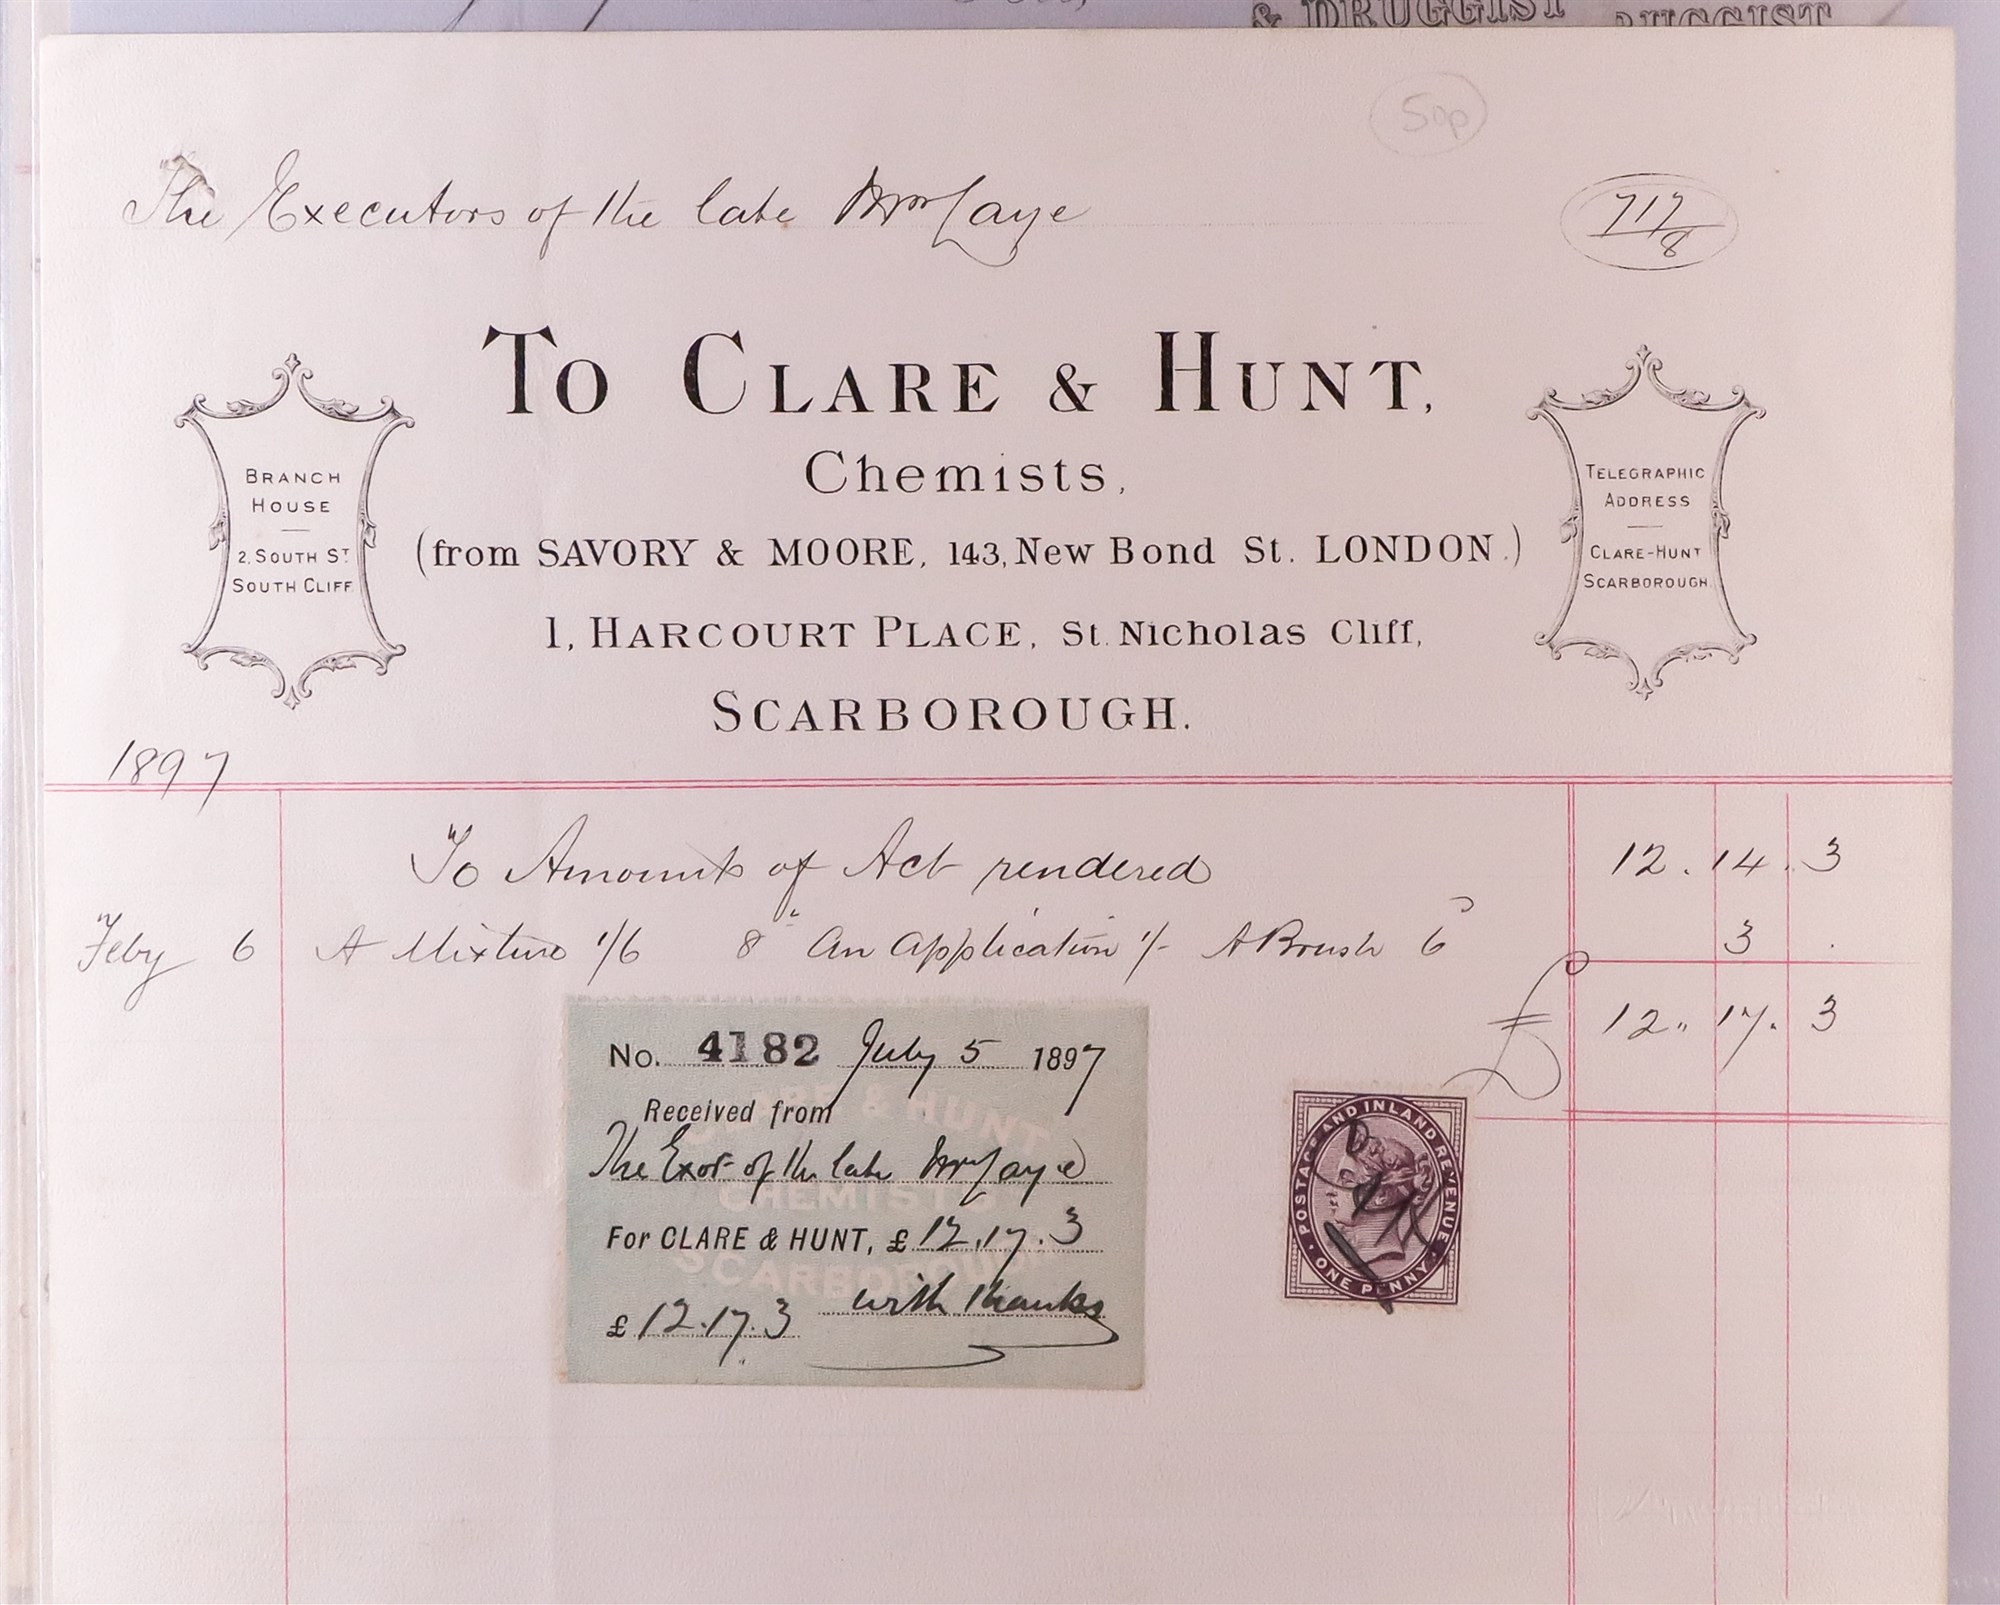 & DRUGGIST
50p
The Executors of the late
717/8
TO CLARE & HUNT,
Chemists,
(from SAVORY & MOORE, 143, New Bond St. LONDON.)
1, HARCOURT PLACE, St. Nicholas Cliff,
SCARBOROUGH.
BRANCH
HOUSE
2, SOUTH ST.
SOUTH CLIFF
TELEGRAPHIC
ADDRESS
CLARE-HUNT
SCARBOROUGH.
1897
To Amounts of Act rendered 12. 14. 3
Feby 6 A Mixture 1/6 8" An Application 1/- A Brush 6 3 .
£ 12" 17. 3
No. 4182 July 5 1897
Received from
The Exors of the late
For CLARE & HUNT, £ 12.17.3
£ 12.17.3 with thanks
CLARE & HUNT
CHEMISTS
SCARBOROUGH
POSTAGE AND INLAND REVENUE
ONE PENNY